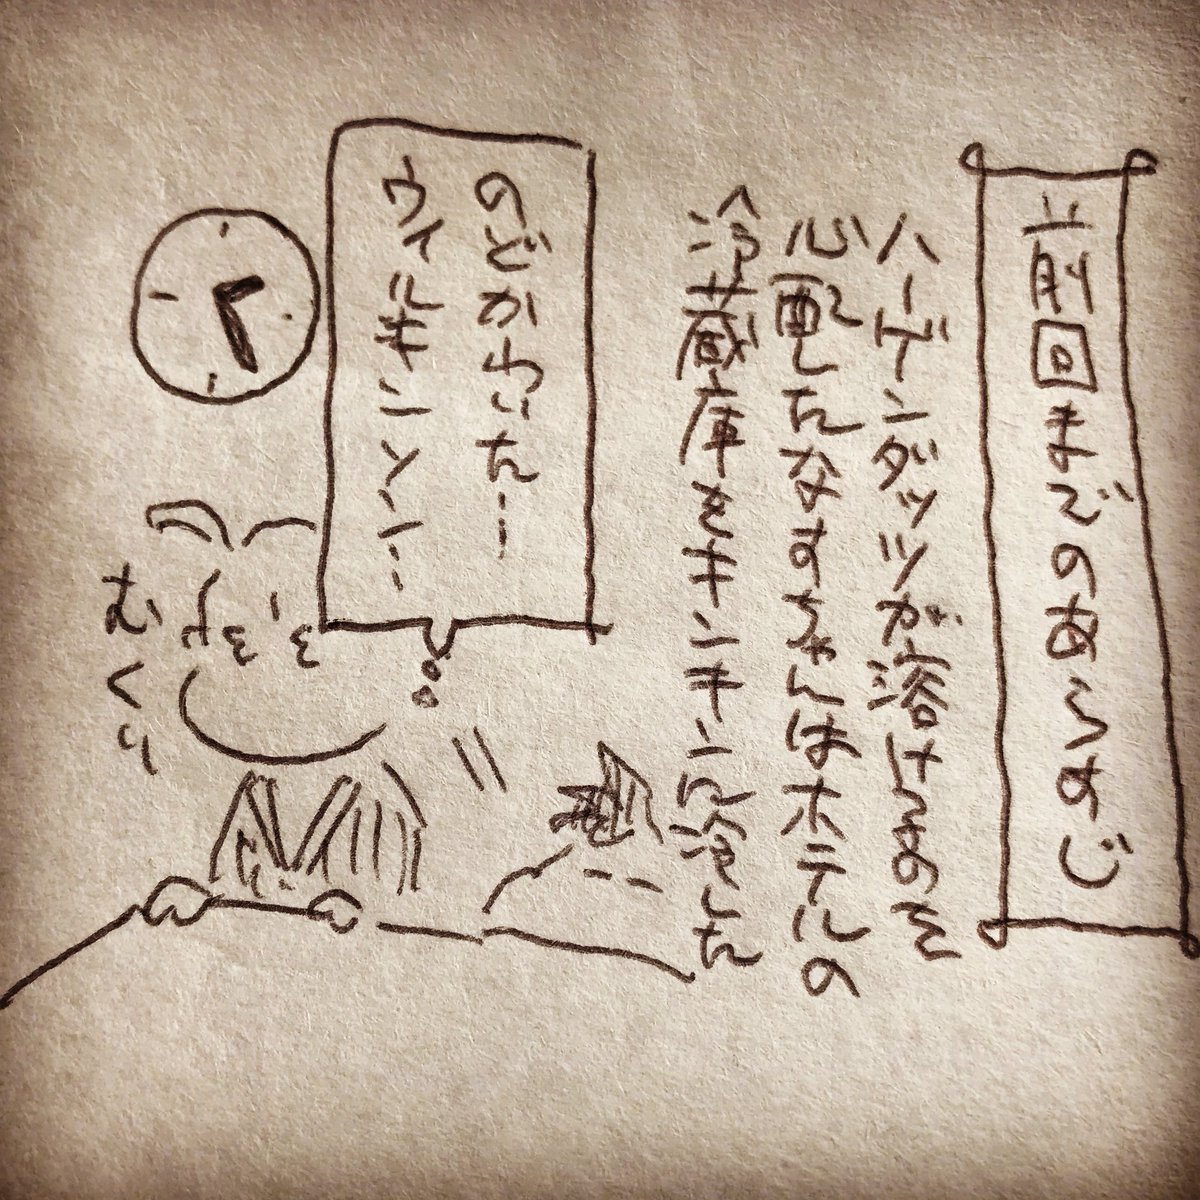 前回までのあらすじ
ハーゲンダッツが溶けるのを
心配したなすちゃんはホテルの
冷蔵庫をキンキンに冷した
のどかわいた…
ウィルキンソン…
むくり